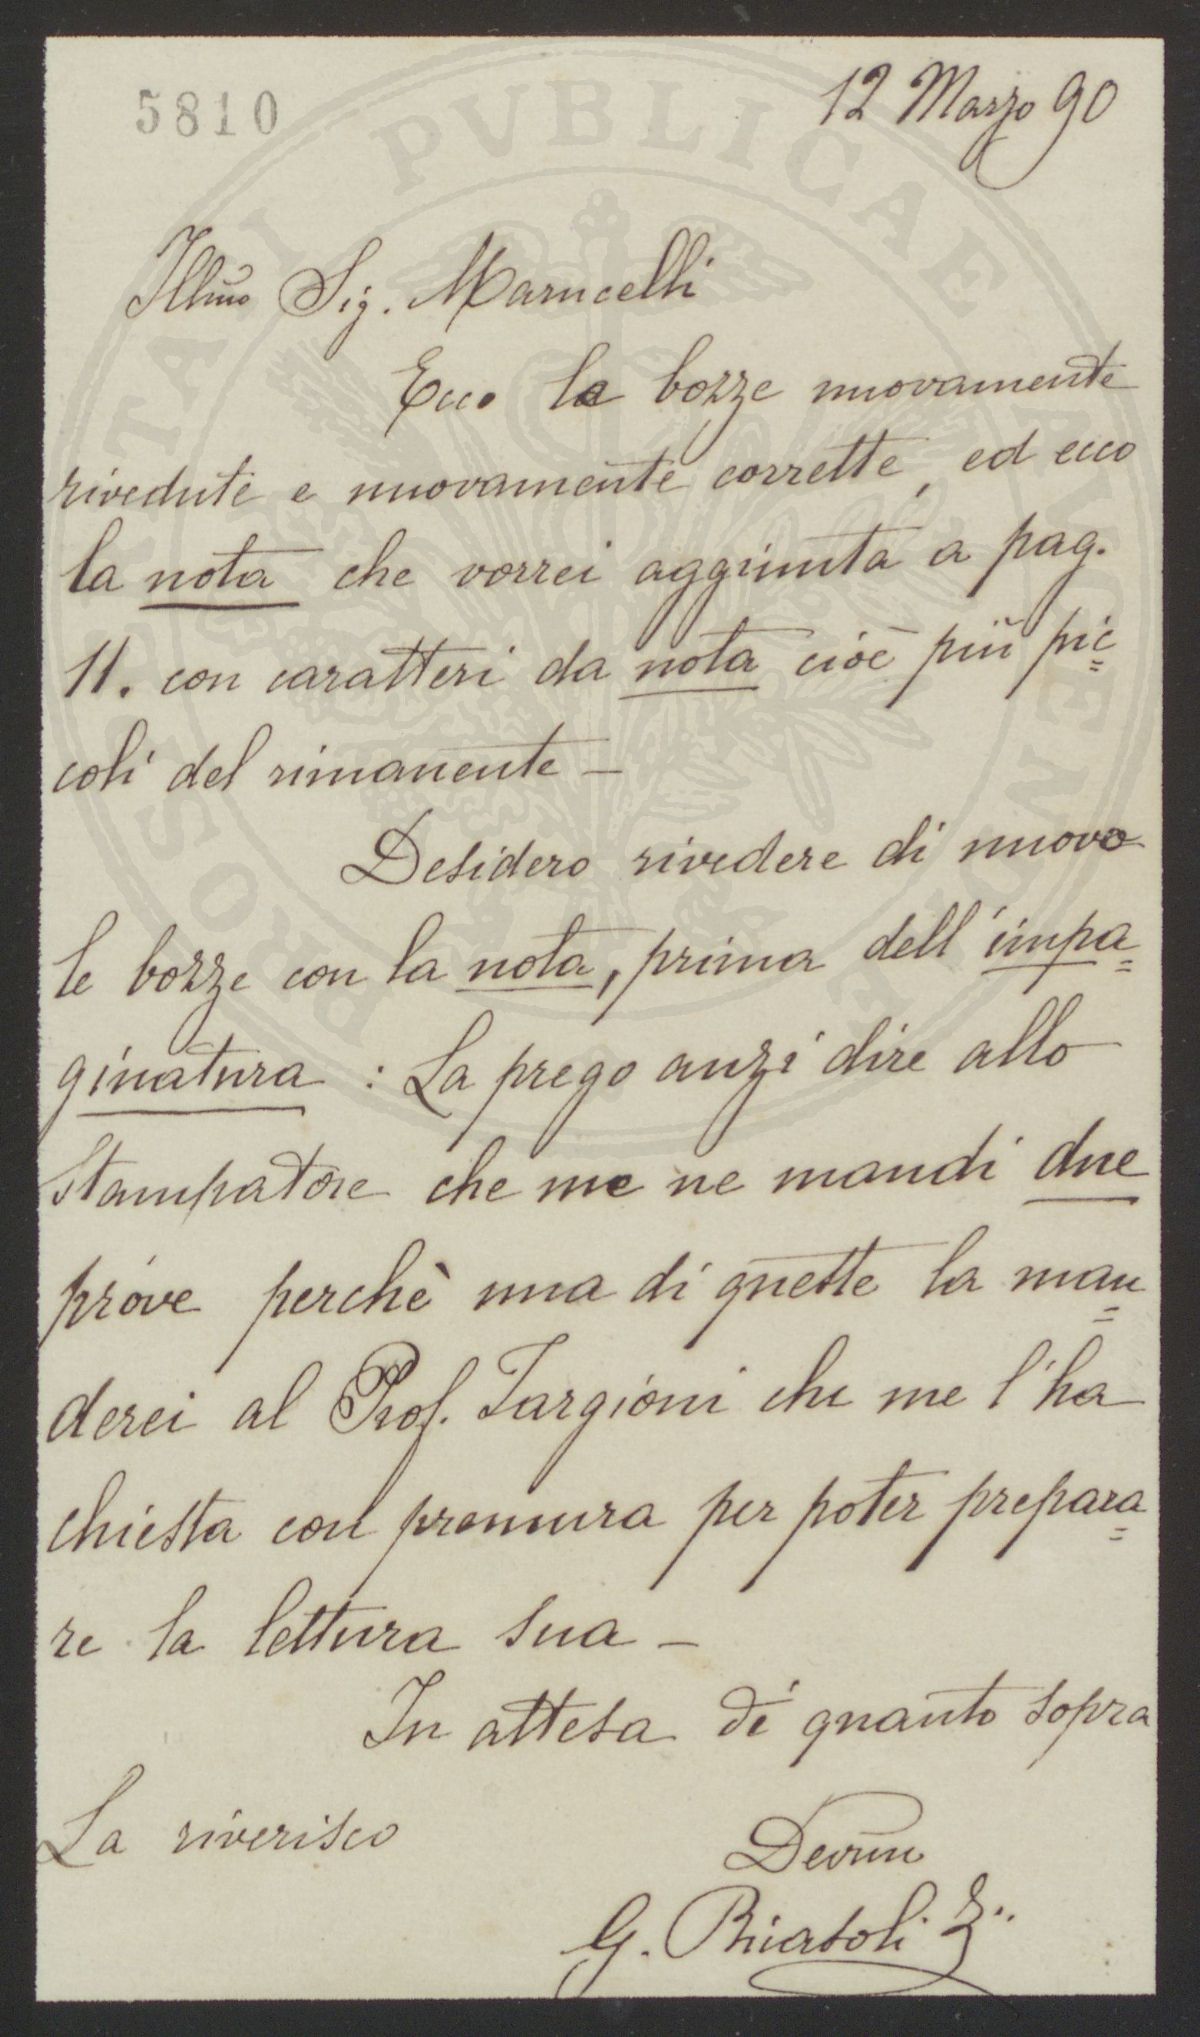 5810
12 Marzo 90
Illmo Sig. Marucelli
Ecco le bozze nuovamente
rivedute e nuovamente corrette, ed ecco
la nota che vorrei aggiunta a pag.
11. con caratteri da nota cioè più pic=
coli del rimanente –
Desidero rivedere di nuovo
le bozze con la nota, prima dell'impa=
ginatura : La prego anzi dire allo
Stampatore che me ne mandi due
prove perchè una di queste la man=
derei al Prof. Targioni che me l'ha
chiesta con premura per poter prepara=
re la lettura sua –
In attesa di quanto sopra
La riverisco
Devmo
G.